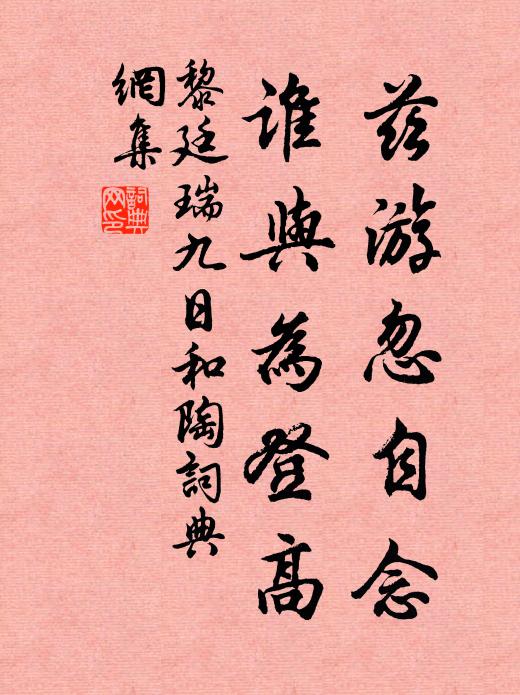 茲游忽自念
誰與為登高
黎廷瑞九日和陶詞典
網集
詞典
网印